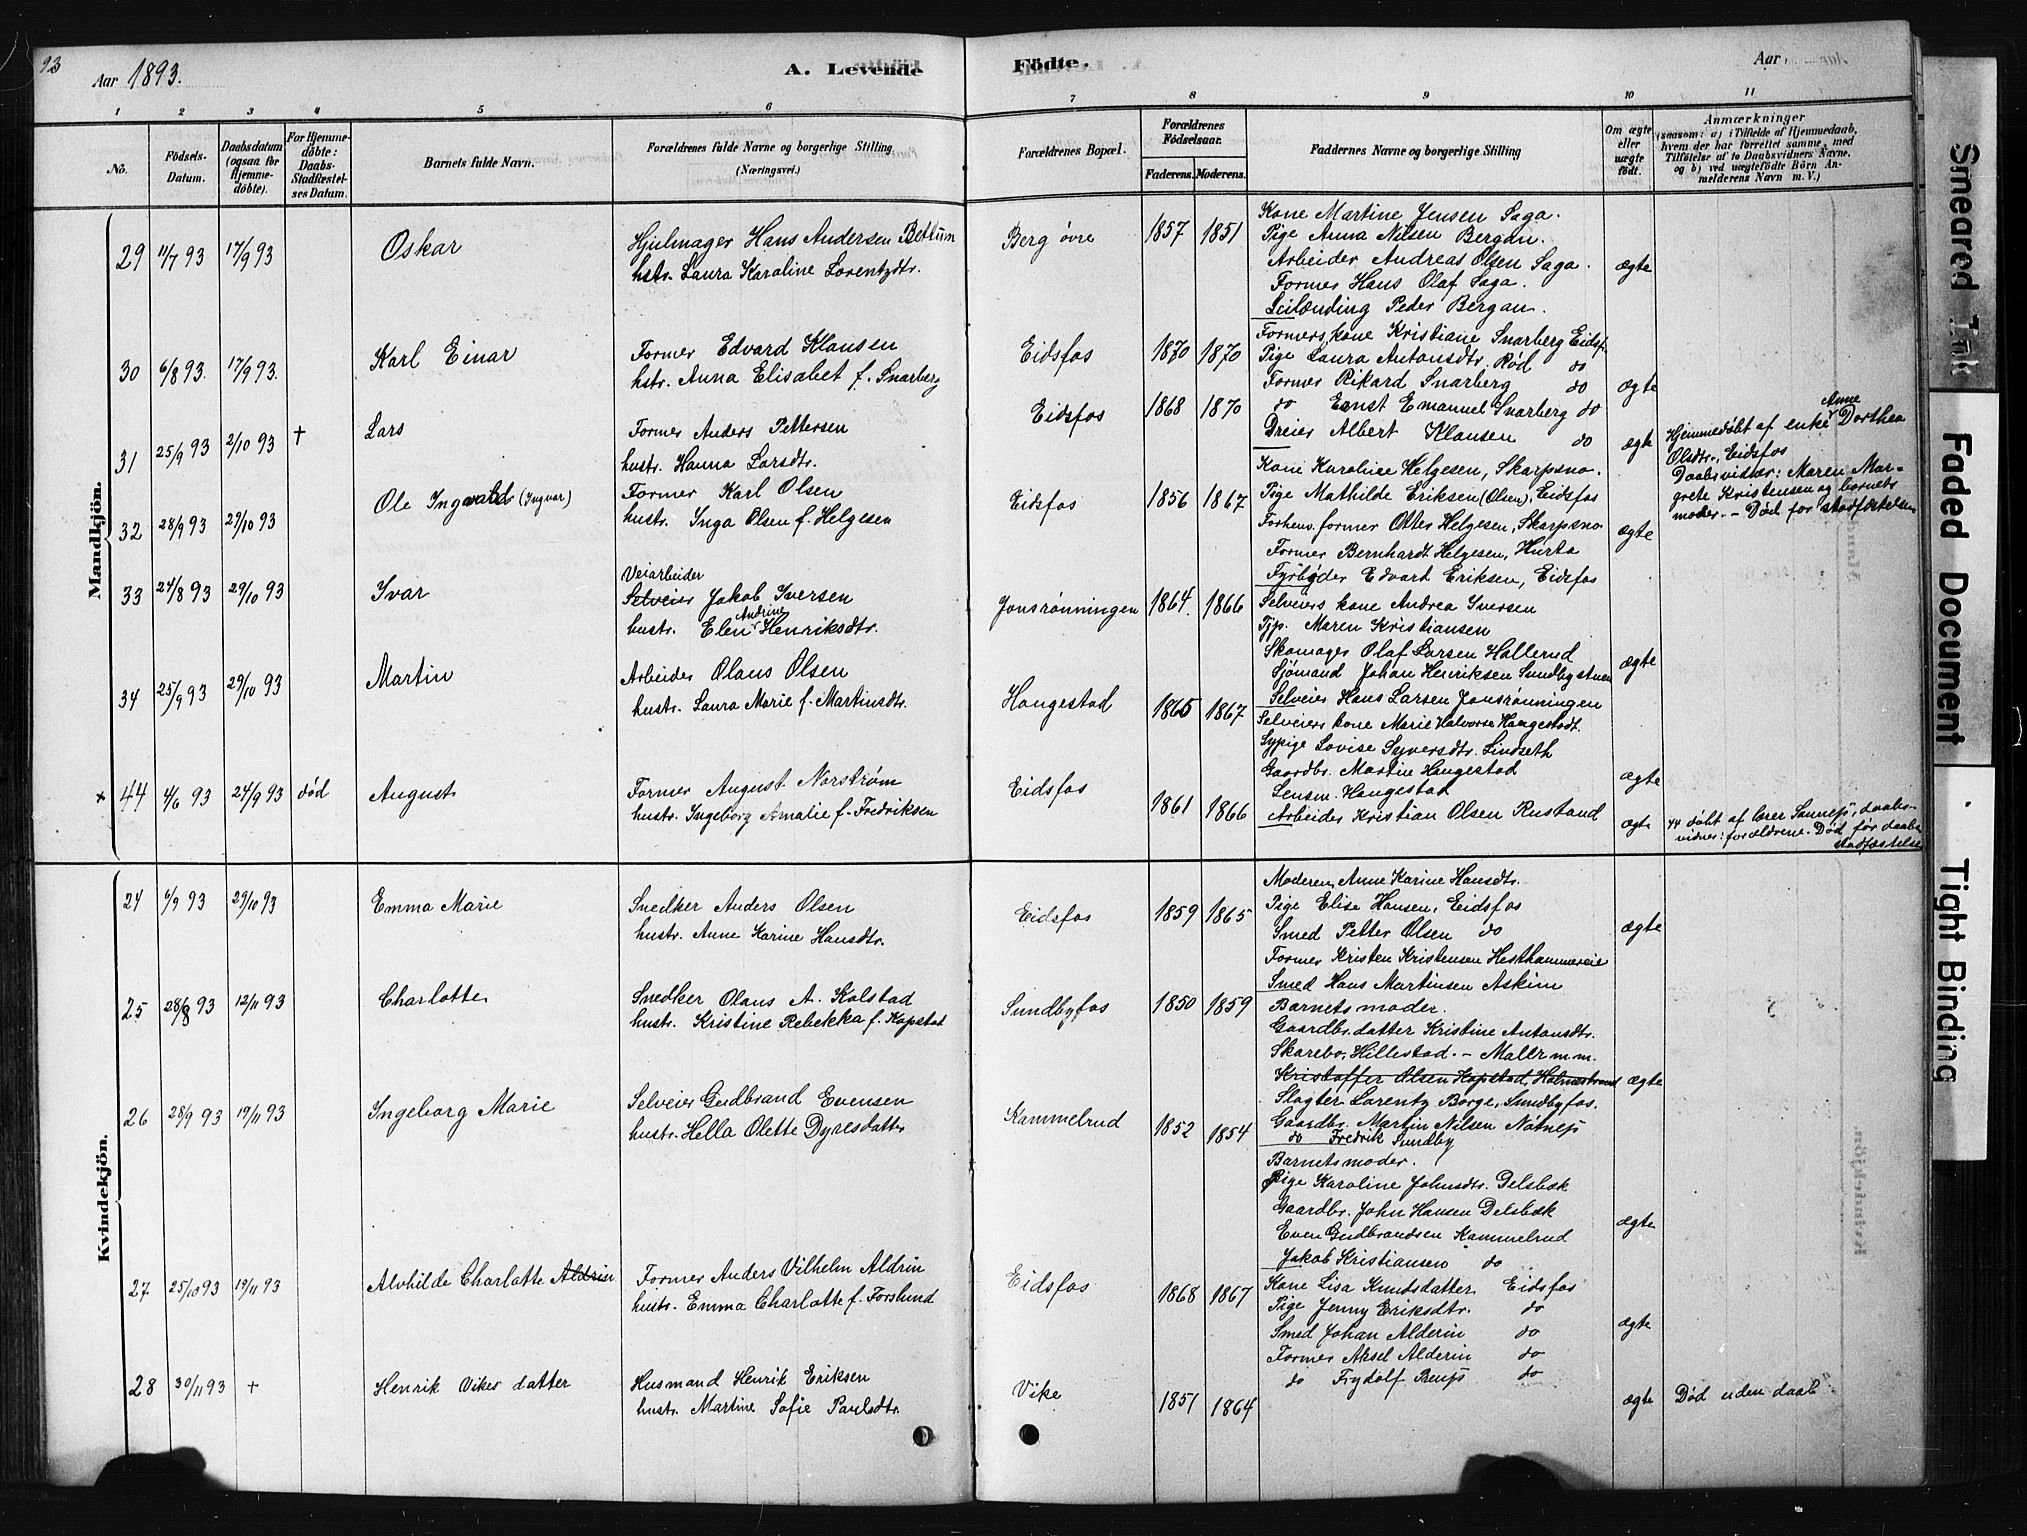 93
Aar 1893.
A. Levende
Födte.
Aar
1 2 3 4 5 6 7 8 9 10 11
No.
Födsels-
Datum.
Daabsdatum
(ogsaa for
Hjemme-
döbte).
For Hjemme-
döbte:
Daabs-
Stadfæstel-
ses Datum.
Barnets fulde Navn.
Forældrenes fulde Navne og borgerlige Stilling
(Næringsvei.)
Forældrenes Bopæl.
Forældrenes
Födselsaar.
Faderens. Moderens.
Faddernes Navne og borgerlige Stilling
Om ægte
eller
uægte
födt.
Anmærkninger
(saasom: a) i Tilfælde af Hjemmedaab,
hvem der har forrettet samme, med
Tilföielse af to Daabsvidners Navne,
og b) ved uægtefödte Börn An-
melderens Navn m. V.)
Mandkjön.
29 11/7 93 17/9 93 Oskar
Hjulmager Hans Andersen Bettum
hstr. Laura Karoline Lorentzdtr.
Berg øvre 1857 1851
Kone Martine Jensen Saga.
Pige Anna Nilsen Bergan.
Arbeider Andreas Olsen Saga.
Former Hans Olaf Saga.
Leilænding Peder Bergan.
ægte
30 6/8 93. 17/9 93. Karl Einar
Former Edvard Klausen
hstr. Anna Elisabet f. Snarberg
Eidsfos 1870 1870
Formers kone Kristiane Snarberg Eidsf.
Pige Laura Antonsdtr. Rød do
Former Rikard Snarberg do
do Ernst Emanuel Svarberg do
Dreier Albert Klausen do
ægte
31 25/9 93 2/10 93 † Lars
Former Anders Pettersen
hustr. Hanna Larsdtr.
Eidsfos 1868 1870
ægte
Hjemmedøbt af enke Anne Dorthea
Olsdtr., Eidsfos
Daabsvidner: Maren Mar-
grete Kristensen og barnets
moder. - Død før stadfæstelsen
32 28/9 93 29/10 93 Ole Ingvald (Ingvar)
Former Karl Olsen
hustr. Inga Olsen f. Helgesen
Eidsfos 1856 1867
Kone Karoline Helgesen, Skarpsno.
Pige Mathilde Eriksen (Olsen), Eidsfos
Forhenv. former Otter Helgesen, Skarpsno
Former Bernhardt Helgesen, Hurta
Fyrbøder Edvart Eriksen, Eidsfos
ægte
33 24/8 93 29/10 93 Ivar
Veiarbeider
Selveier Jakob Iversen
hustr. Elen Andrine Henriksdtr.
Jonsrønningen 1864. 1866
Selveiers kone Andrea Iversen
Tjp. Maren Kristiansen
Skomager Olaf Larsen Hallerud
Sjømand Johan Henriksen Sundbystuen
Selveier Hans Larsen Jonsrønningen
ægte
34 25/9 93 29/10 93 Martin
Arbeider Olaus Olsen
hustr. Laura Marie f. Martinsdtr.
Hangestad 1865 1867
Selveiers kone Marie Halvorse Hangestadt.
Sypige Lovise Syversdtr. Lindseth
Gaardbr. Martin Hangestad
Lensm. Hangestad
Arbeider Kristian Olsen Rustand
ægte
x 44 4/6 93 24/9 93 død August
Former August Norstrøm
hustr. Ingeborg Amalie f. Fredriksen
Eidsfos 1861 1866
ægte
44 døbt af lærer Sannes, daabs-
vidner: forældrene. Død før daabs
stadfæstelse
Kvindekjön.
24 6/9 93 29/10 93 Emma Marie
Snedker Anders Olsen
hustr. Anne Karine Hansdtr.
Eidsfos 1859 1865
Moderen, Anne Karine Hansdtr.
Pige Elise Hansen, Eidsfos
Smed Petter Olsen do
Former Kristen Kristensen Hesthammereie
Smed Hans Martinsen Askim
ægte
25 28/8 93 12/11 93 Charlotte
Snedker Olaus A. Kolstad
hustr. Kristine Rebekka f. Kopstad
Sundbyfos 1850 1859
Barnets moder.
Gaardbr. datter Kristine Antonsdtr.
Skarebo, Hillestad. - Møller m.m.
Kristoffer Olsen Kopstad, Holmestrand
Slagter Lorentz Borge, Sundbyfos.
Gaardbr. Martin Nilsen Nøtnes
do Fredrik Sundby
ægte
26 28/9 93 19/11 93 Ingeborg Marie
Selveier Gudbrand Evensen
hustr. Hella Olette Dyresdatter
Kammelrud 1852 1854
Barnets moder.
Pige Karoline Johnsdtr. Delsbæk
Gaardbr. John Hansen Delsbæk
Even Gudbrandsen Kammelrud
Jakob Kristiansen do
ægte
27 25/10 93 19/11 93 Alvhilde Charlotte Aldrin
Former Anders Vilhelm Aldrin
hustr. Emma Charlotte f. Forslund
Eidsfos 1868 1867
Kone Lisa Knudsdatter Eidsfos
Pige Jenny Eriksdtr. do
Smed Johan Alderin do
Former Aksel Alderin do
do Frydolf do
ægte
28 30/11 93 + Henrik Vikes datter
Husmand Henrik Eriksen
hustr. Martine Sofie Paulsdtr.
Vike 1851 1864
ægte Død uden daab
Smeared Ink
Faded Document
Tight Binding